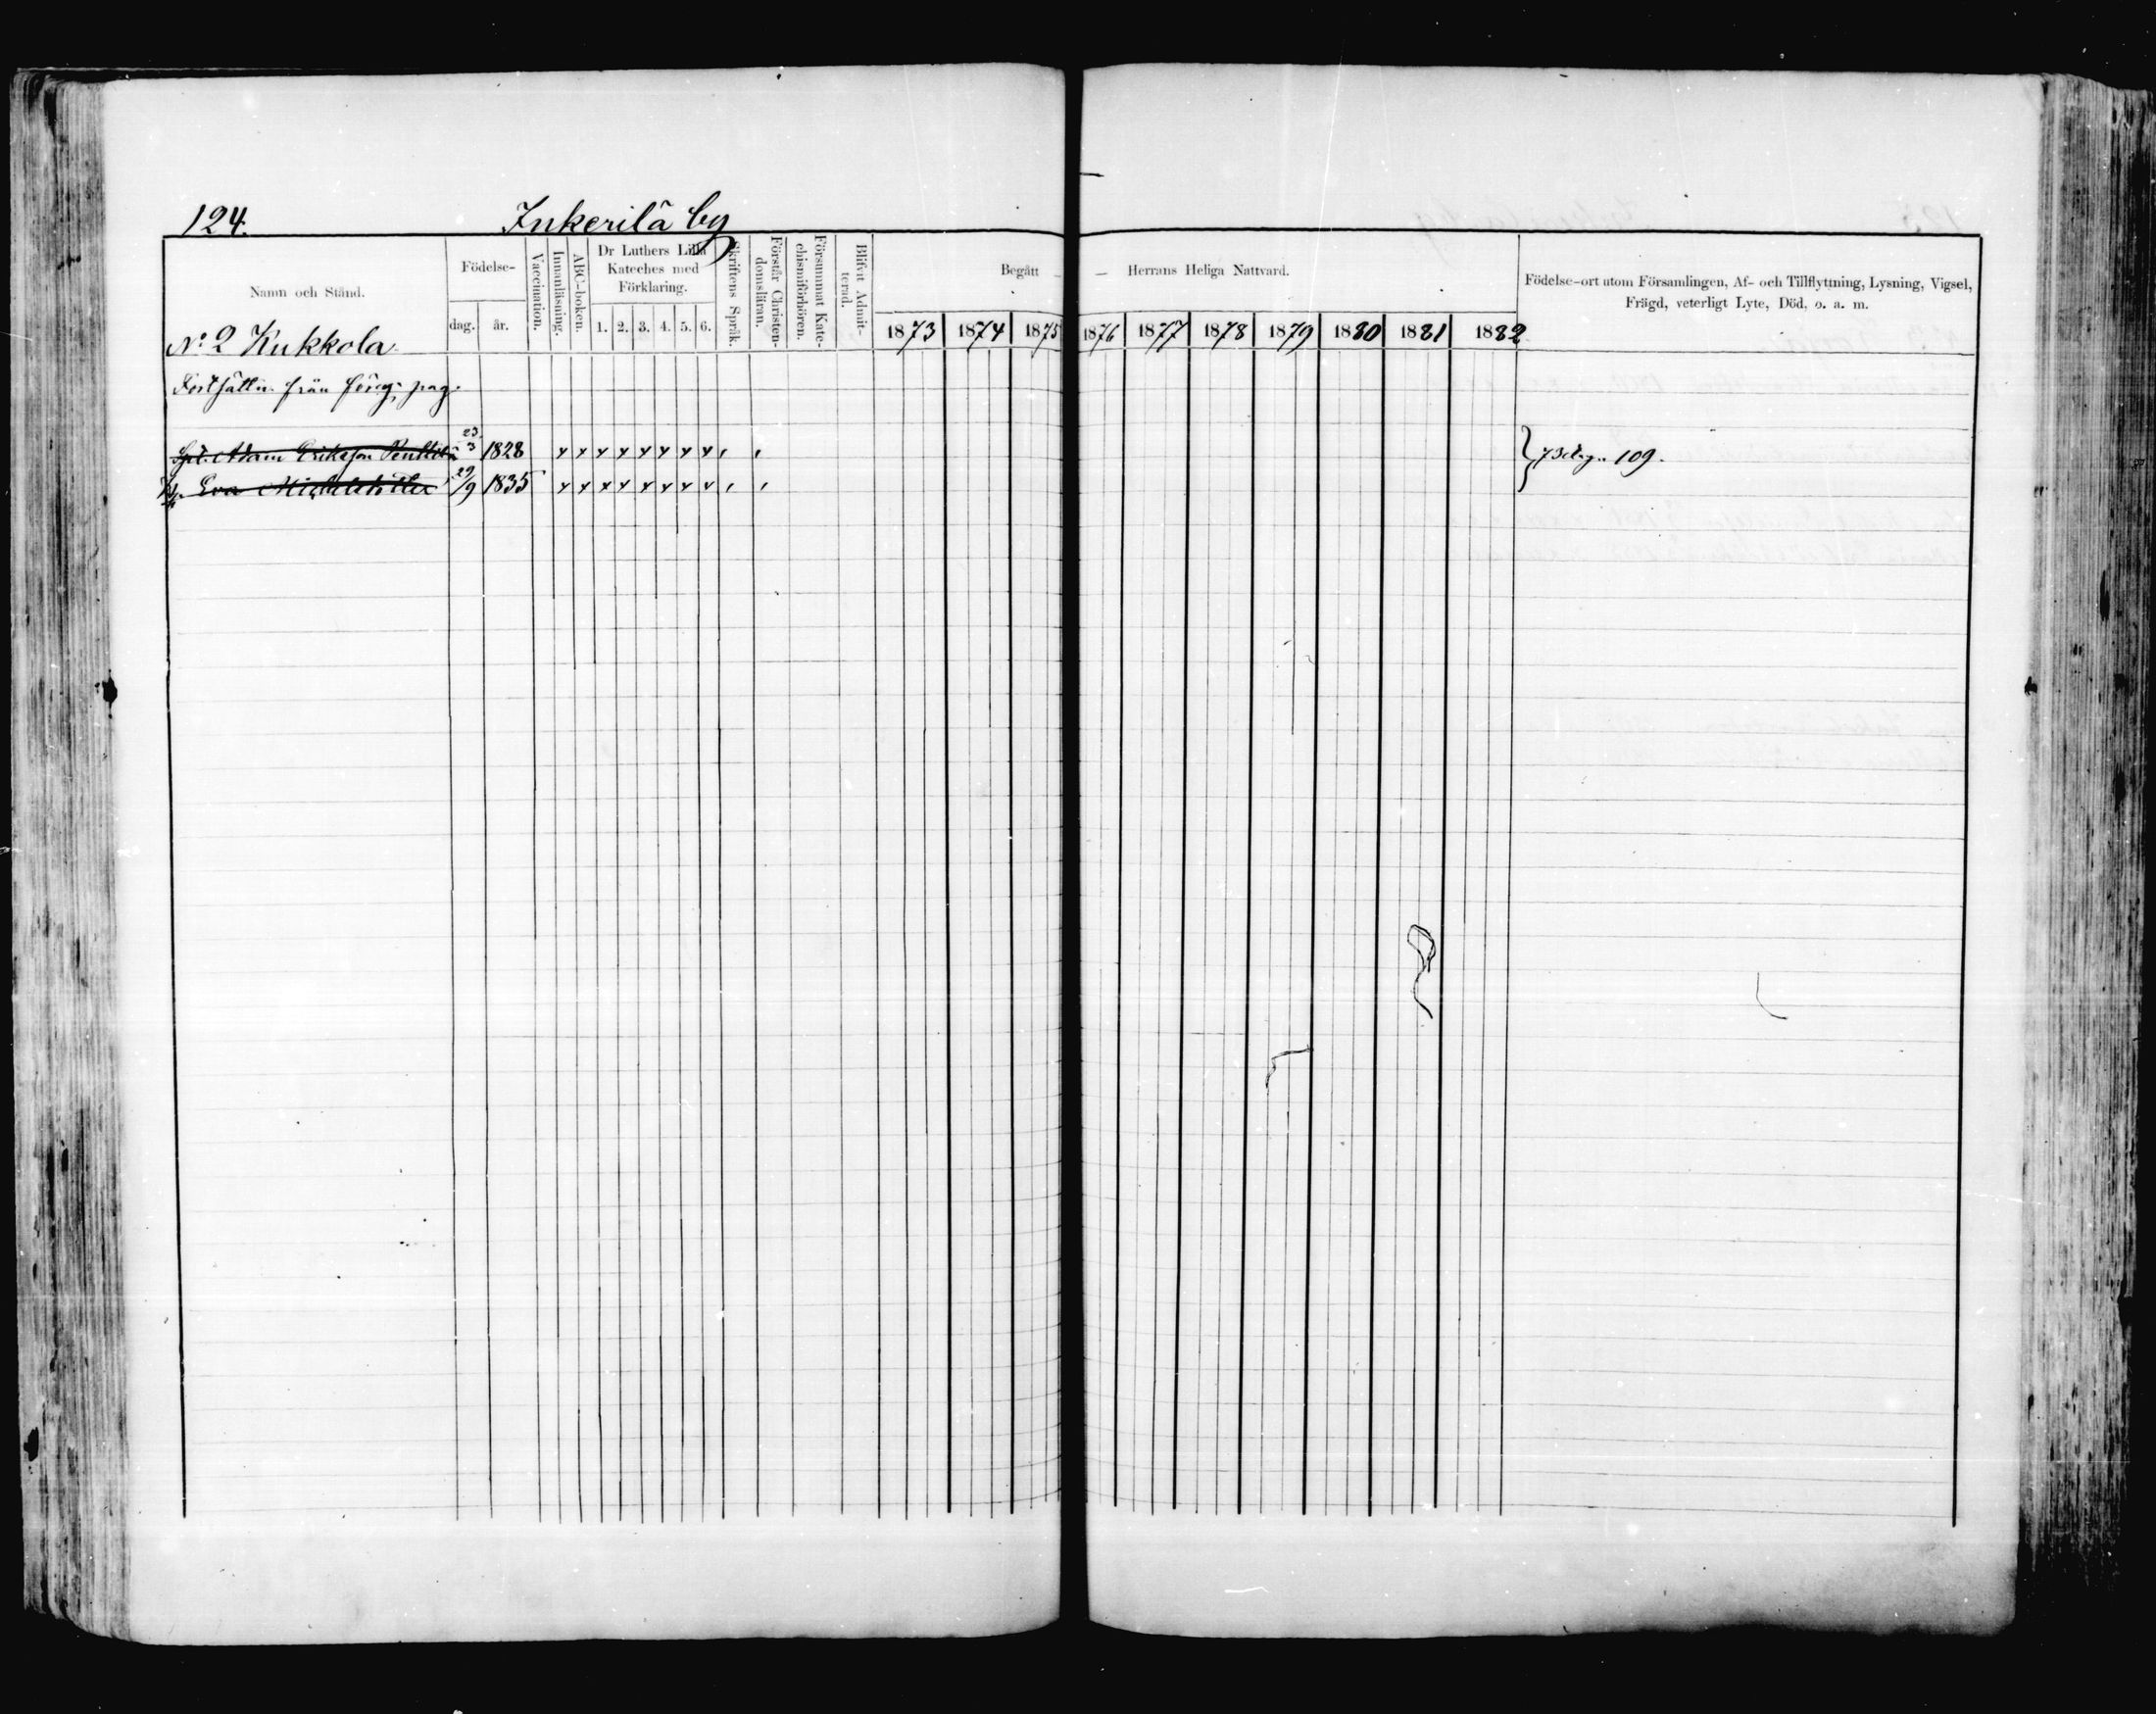 124. Inkerilä by
Namn och Stånd.
Födelse-
dag. år.
Vaccination.
Innanläsning.
ABC-boken.
Dr Luthers Lilla
Kateches med
Förklaring.
1. 2. 3. 4. 5. 6.
Skriftens Språk.
Förstår Christen-
domsläran.
Försummat Kate-
chismiförhören.
Blifvit Admit-
terad.
Begått — — Herrans Heliga Nattvard.
1873 1874 1875 1876 1877 1878 1879 1880 1881 1882
Födelse-ort utom Församlingen, Af- och Tillflyttning, Lysning, Vigsel,
Frägd, veterligt Lyte, Död, o. a. m.
No 2 Kukkola
från föreg. pag.
Adam Eriksson 23/3 1828 x x x x x x x x , ,
Eva 29/9 1835 x x x x x x x x , ,
109.